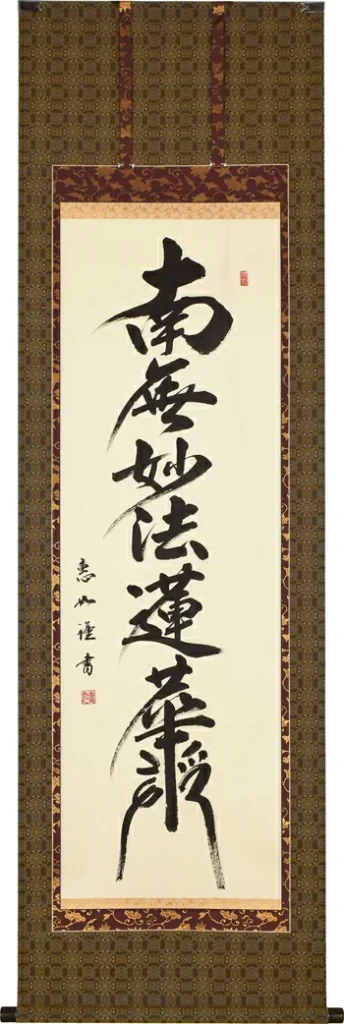 南無妙法蓮華經
惠如謹書